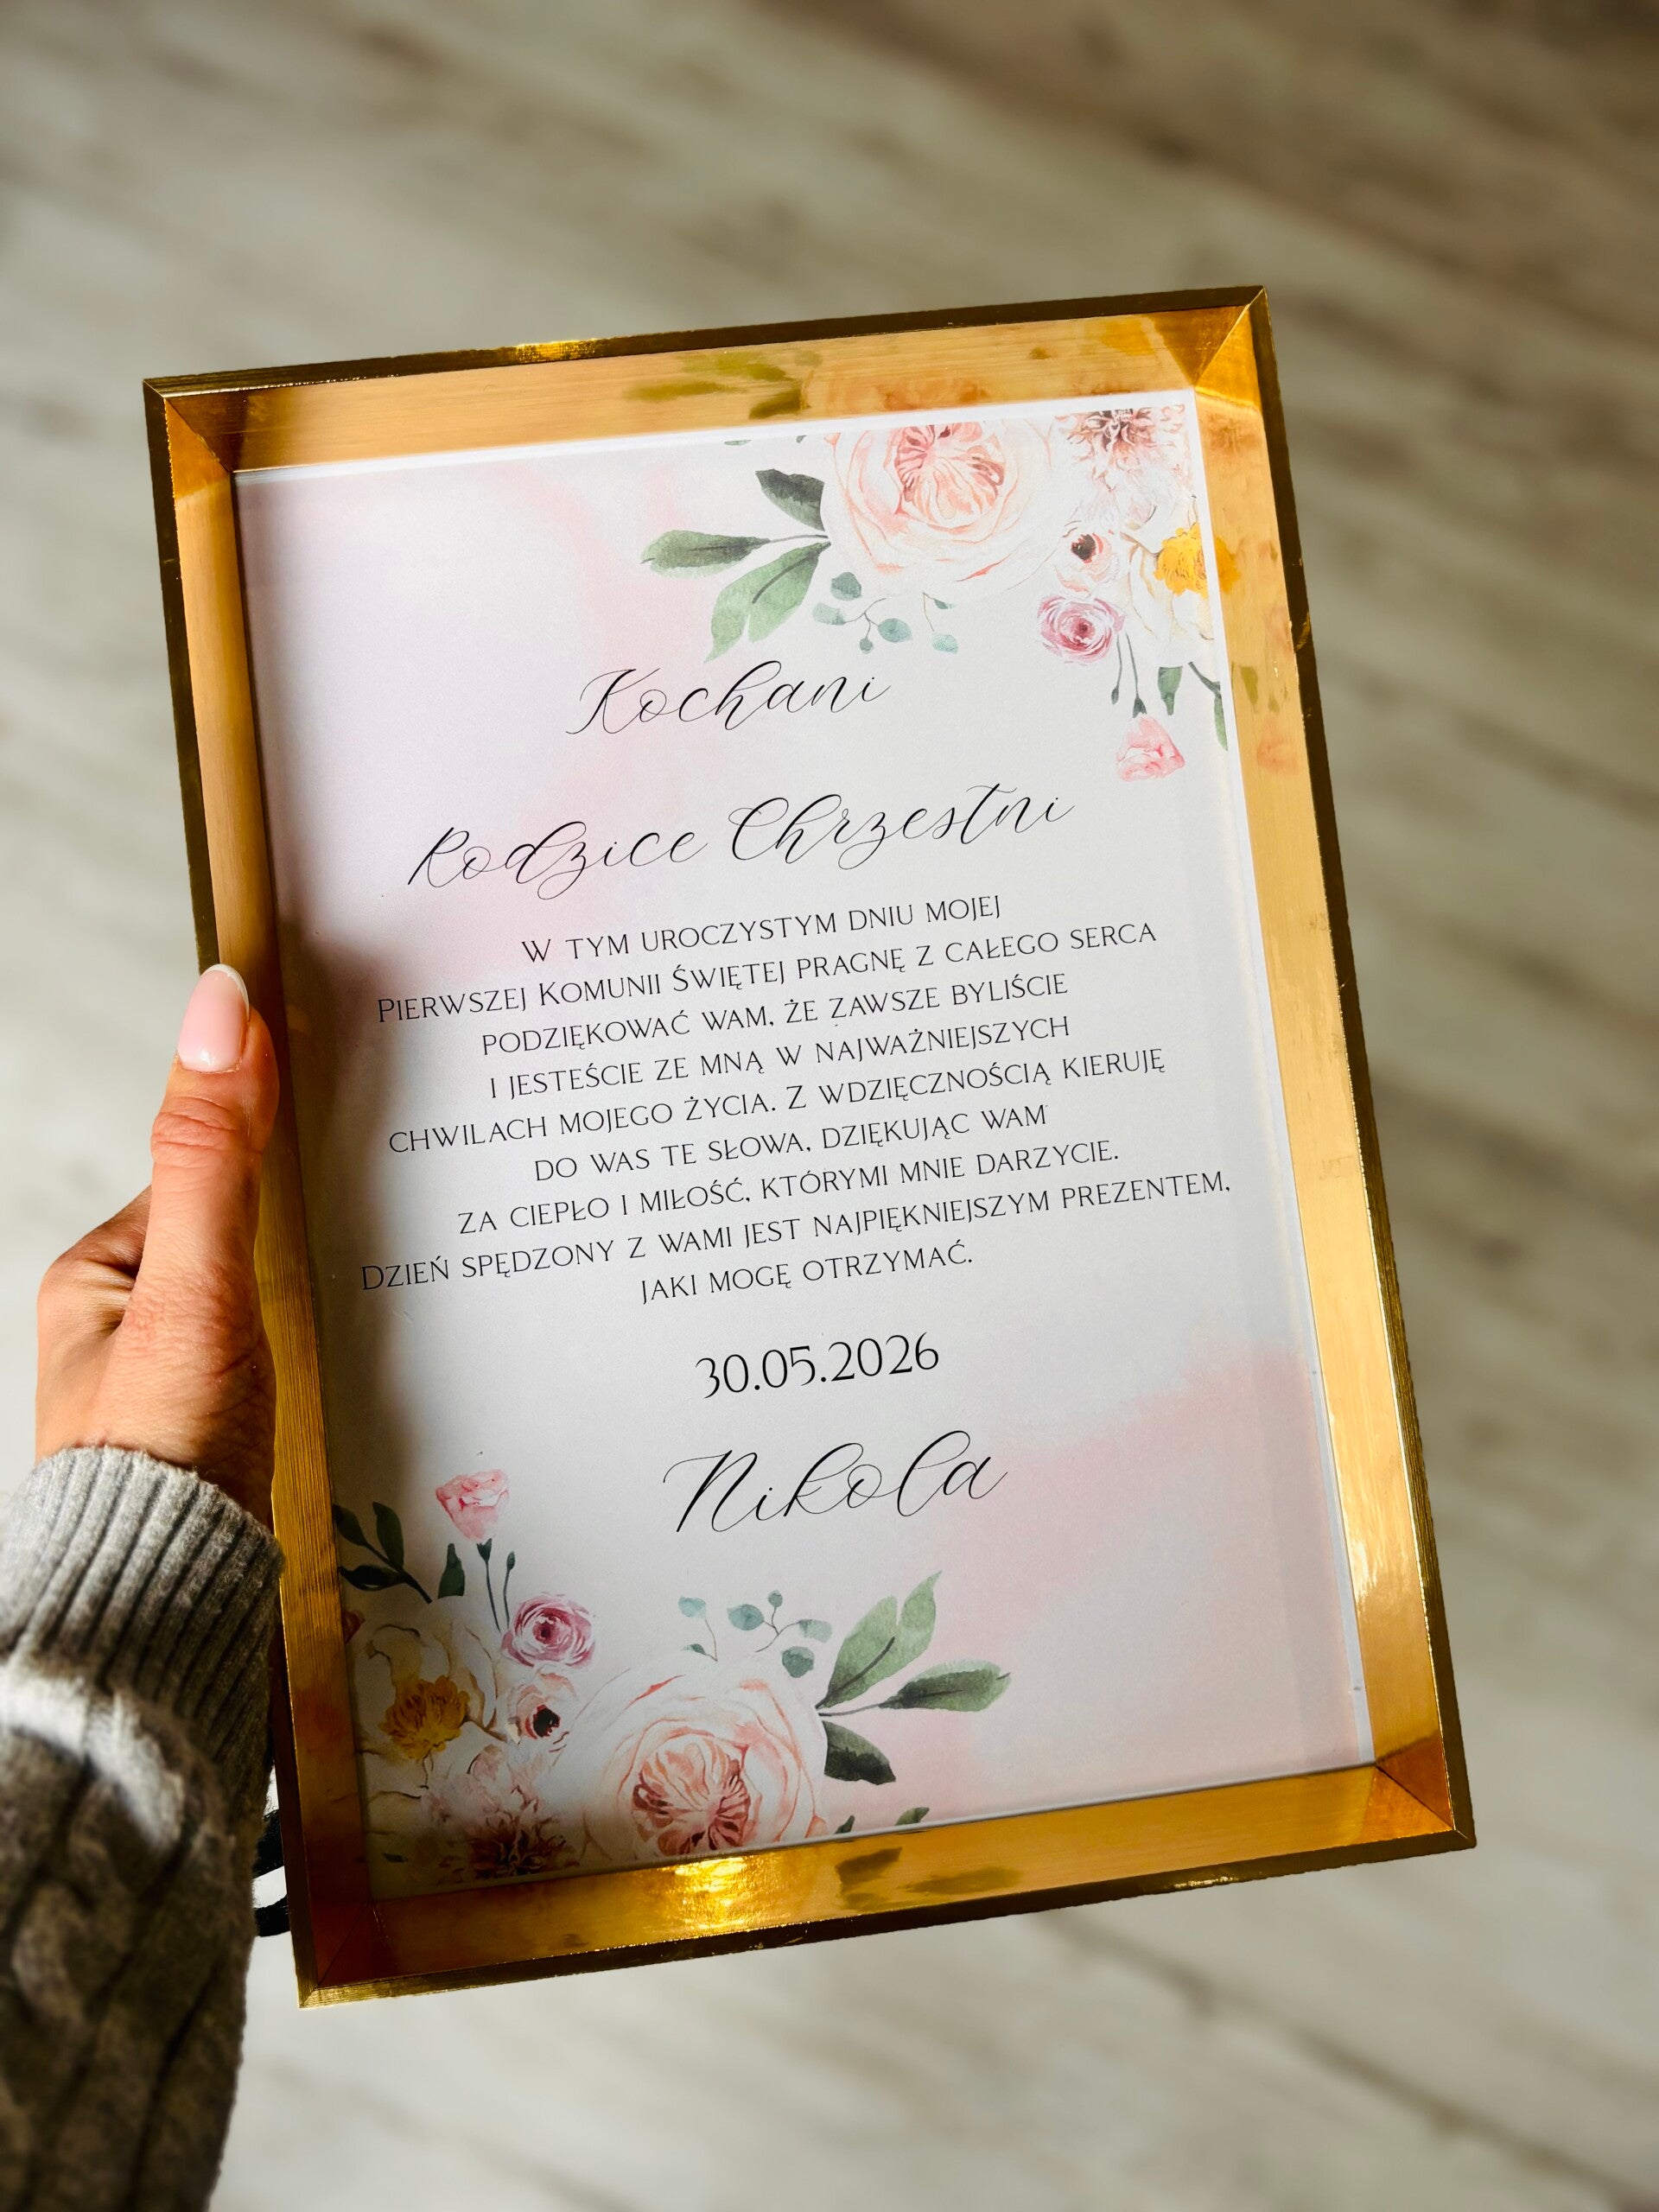 Kochani
Rodzice Chrzestni
W TYM UROCZYSTYM DNIU MOJEJ
PIERWSZEJ KOMUNII ŚWIĘTEJ PRAGNĘ Z CAŁEGO SERCA
PODZIĘKOWAĆ WAM, ŻE ZAWSZE BYLIŚCIE
I JESTEŚCIE ZE MNĄ W NAJWAŻNIEJSZYCH
CHWILACH MOJEGO ŻYCIA. Z WDZIĘCZNOŚCIĄ KIERUJĘ
DO WAS TE SŁOWA, DZIĘKUJĄC WAM
ZA CIEPŁO I MIŁOŚĆ, KTÓRYMI MNIE DARZYCIE.
DZIEŃ SPĘDZONY Z WAMI JEST NAJPIĘKNIEJSZYM PREZENTEM,
JAKI MOGĘ OTRZYMAĆ.
30.05.2026
Nikola